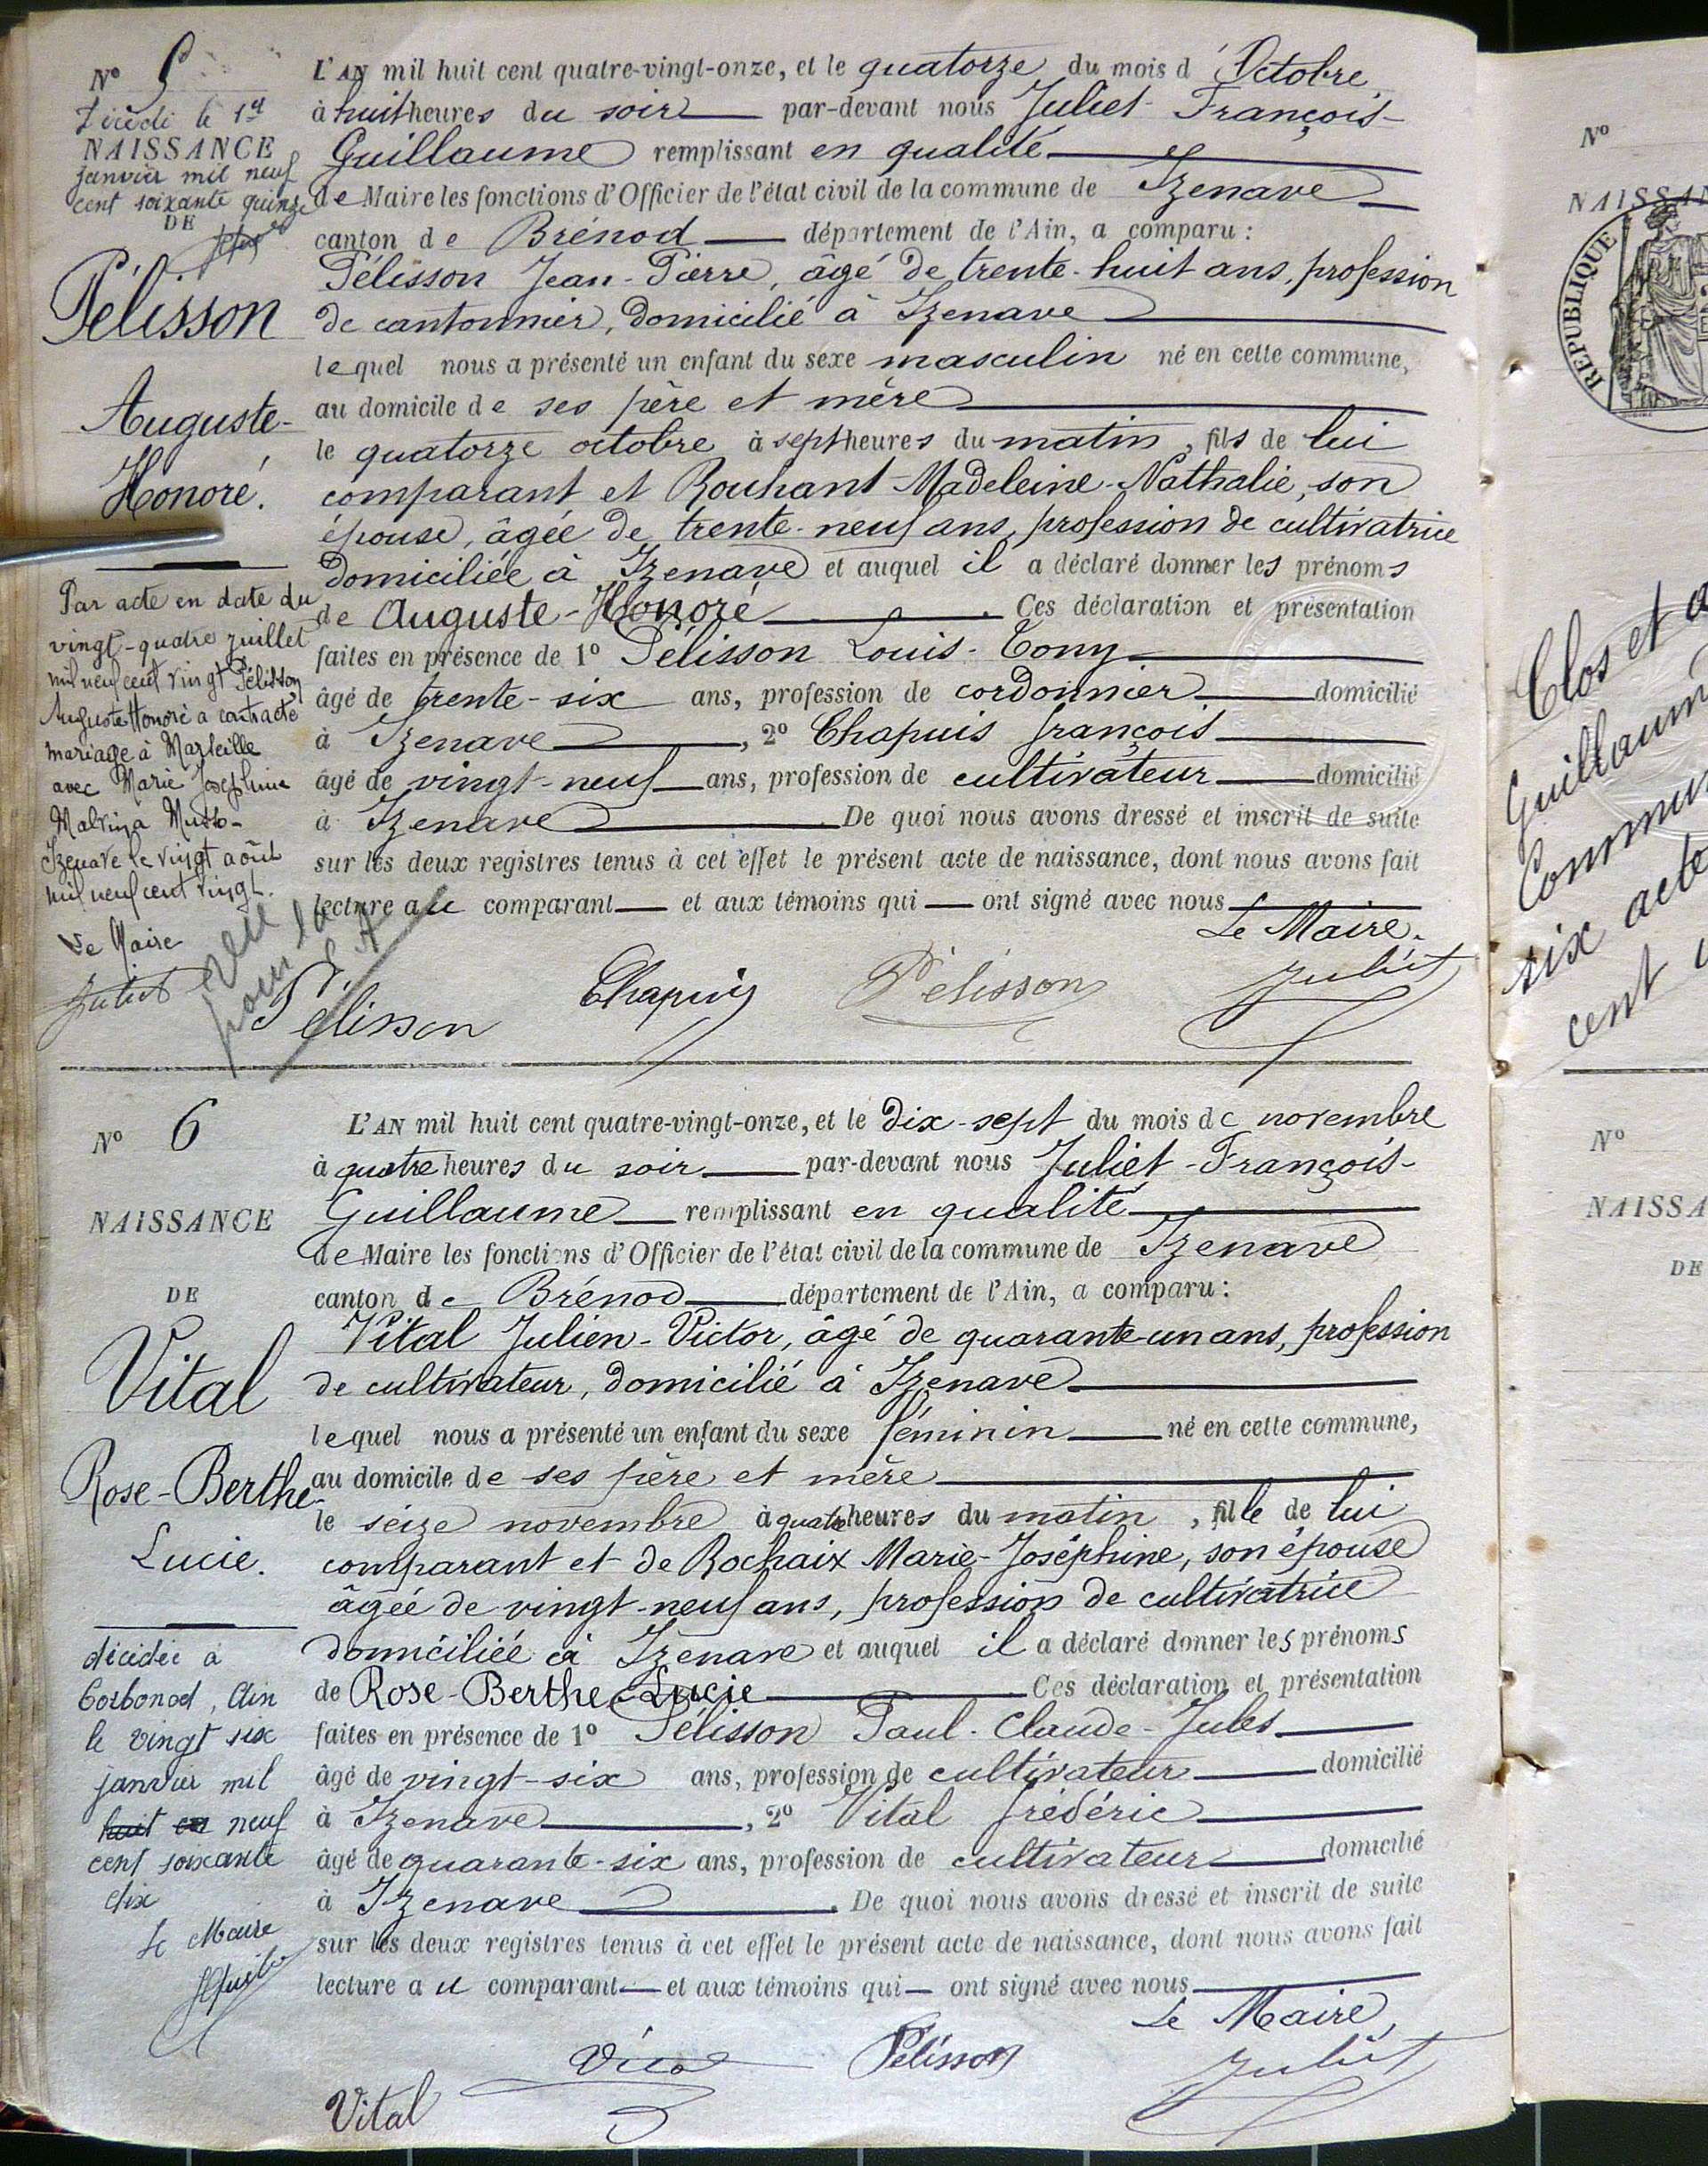 N° 5
Décédé le 1er
NAISSANCE
janvier mil neuf
cent soixante quinze
DE
Pélisson
Auguste-
Honoré.
Par acte en date du
vingt-quatre juillet
mil neuf cent vingt Pélisson
Auguste Honoré a contracté
mariage à Marseille
avec Marie Joséphine
Malvina
Izenave le vingt août
mil neuf cent vingt.
Le Maire
Juliet
L'AN mil huit cent quatre-vingt-onze, et le quatorze du mois d'Octobre
à huit heures du soir par-devant nous Juliet François-
Guillaume remplissant en qualité
de Maire les fonctions d'Officier de l'état civil de la commune de Izenave
canton de Brénod département de l'Ain, a comparu :
Pélisson Jean-Pierre, âgé de trente-huit ans, profession
de cantonnier, domicilié à Izenave
lequel nous a présenté un enfant du sexe masculin né en cette commune,
au domicile de ses père et mère
le quatorze octobre à sept heures du matin, fils de lui
comparant et Rouhant Madeleine-Nathalie, son
épouse, âgée de trente-neuf ans, profession de cultivatrice
domiciliée à Izenave et auquel il a déclaré donner les prénoms
de Auguste-Honoré. Ces déclaration et présentation
faites en présence de 1° Pélisson Louis-Tony
âgé de trente-six ans, profession de cordonnier domicilié
à Izenave, 2° Chapuis françois
âgé de vingt-neuf ans, profession de cultivateur domicilié
à Izenave. De quoi nous avons dressé et inscrit de suite
sur les deux registres tenus à cet effet le présent acte de naissance, dont nous avons fait
lecture au comparant et aux témoins qui ont signé avec nous
Le Maire.
Pélisson Chapuis Pélisson Juliet
N° 6
NAISSANCE
DE
Vital
Rose-Berthe-
Lucie.
décédée à
Corbonod, Ain
le vingt six
janvier mil
huit cen neuf
cent soixante
dix
Le Maire
L'AN mil huit cent quatre-vingt-onze, et le dix-sept du mois de novembre
à quatre heures du soir par-devant nous Juliet-François-
Guillaume remplissant en qualité
de Maire les fonctions d'Officier de l'état civil de la commune de Izenave
canton de Brénod département de l'Ain, a comparu :
Vital Julien-Victor, âgé de quarante-un ans, profession
de cultivateur, domicilié à Izenave
lequel nous a présenté un enfant du sexe féminin né en cette commune,
au domicile de ses père et mère
le seize novembre à quatre heures du matin, fille de lui
comparant et de Rochaix Marie-Joséphine, son épouse
âgée de vingt-neuf ans, profession de cultivatrice
domiciliée à Izenave et auquel il a déclaré donner les prénoms
de Rose-Berthe-Lucie Ces déclaration et présentation
faites en présence de 1° Pélisson Paul-Claude-Jules
âgé de vingt-six ans, profession de cultivateur domicilié
à Izenave, 2° Vital frédéric
âgé de quarante-six ans, profession de cultivateur domicilié
à Izenave. De quoi nous avons dressé et inscrit de suite
sur les deux registres tenus à cet effet le présent acte de naissance, dont nous avons fait
lecture au comparant et aux témoins qui ont signé avec nous
Le Maire,
Vital Pélisson Juliet
Vital
N°
NAISSAN
REPUBLIQUE
Clos et a
Guillaum
Commun
six acte
cent
N°
NAISSA
DE